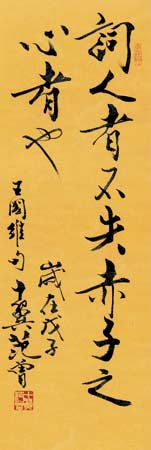 詞人者不失赤子之
心者也
歲在戊子
王國維句十翼范曾